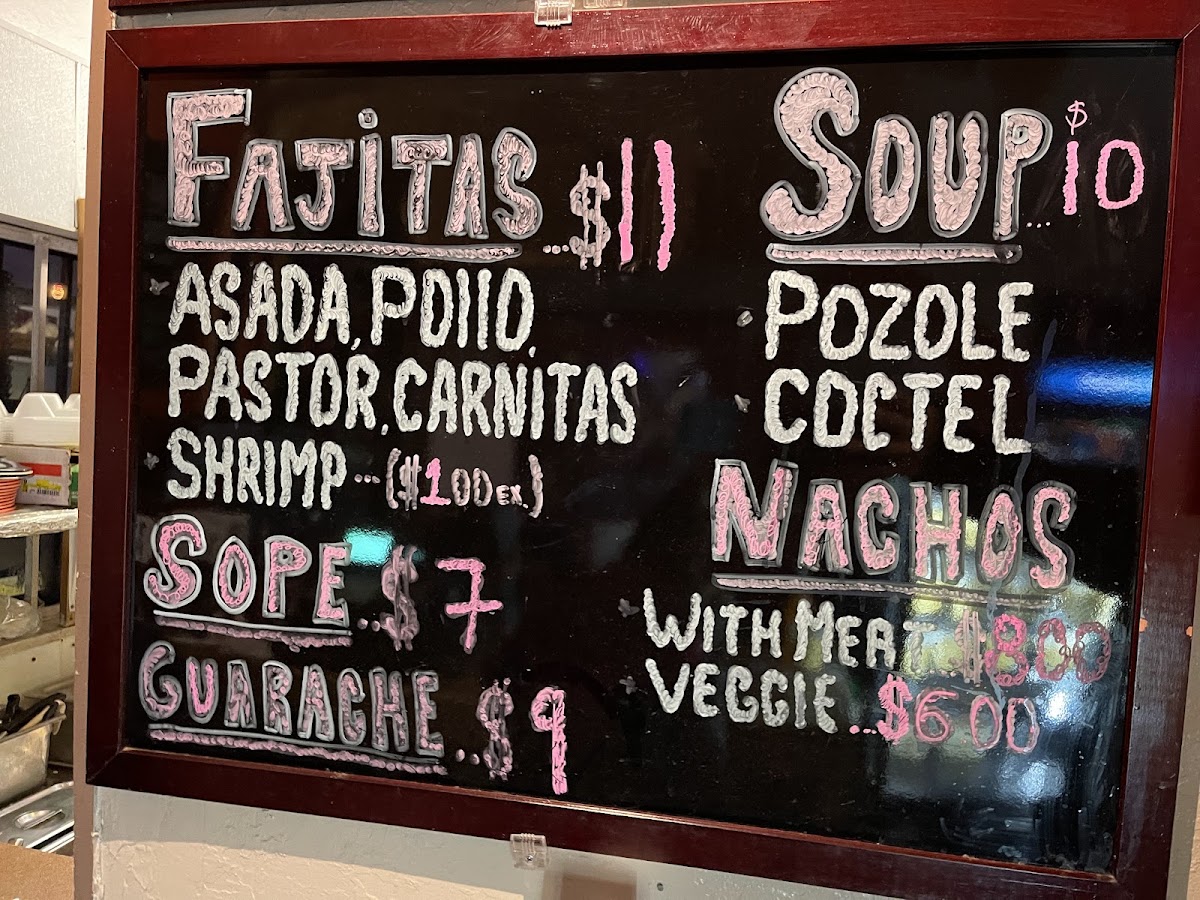 FAJiTAS ...$11
ASADA, POllO,
PASTOR, CARNiTAS
SHRIMP ... ($100 EX.)
SOPE ..$7
GUARACHE ..$9
SOUP ...$10
POZOLE
COCTEL
NACHOS
WITH MEAT. $800
VEGGIE ...$600